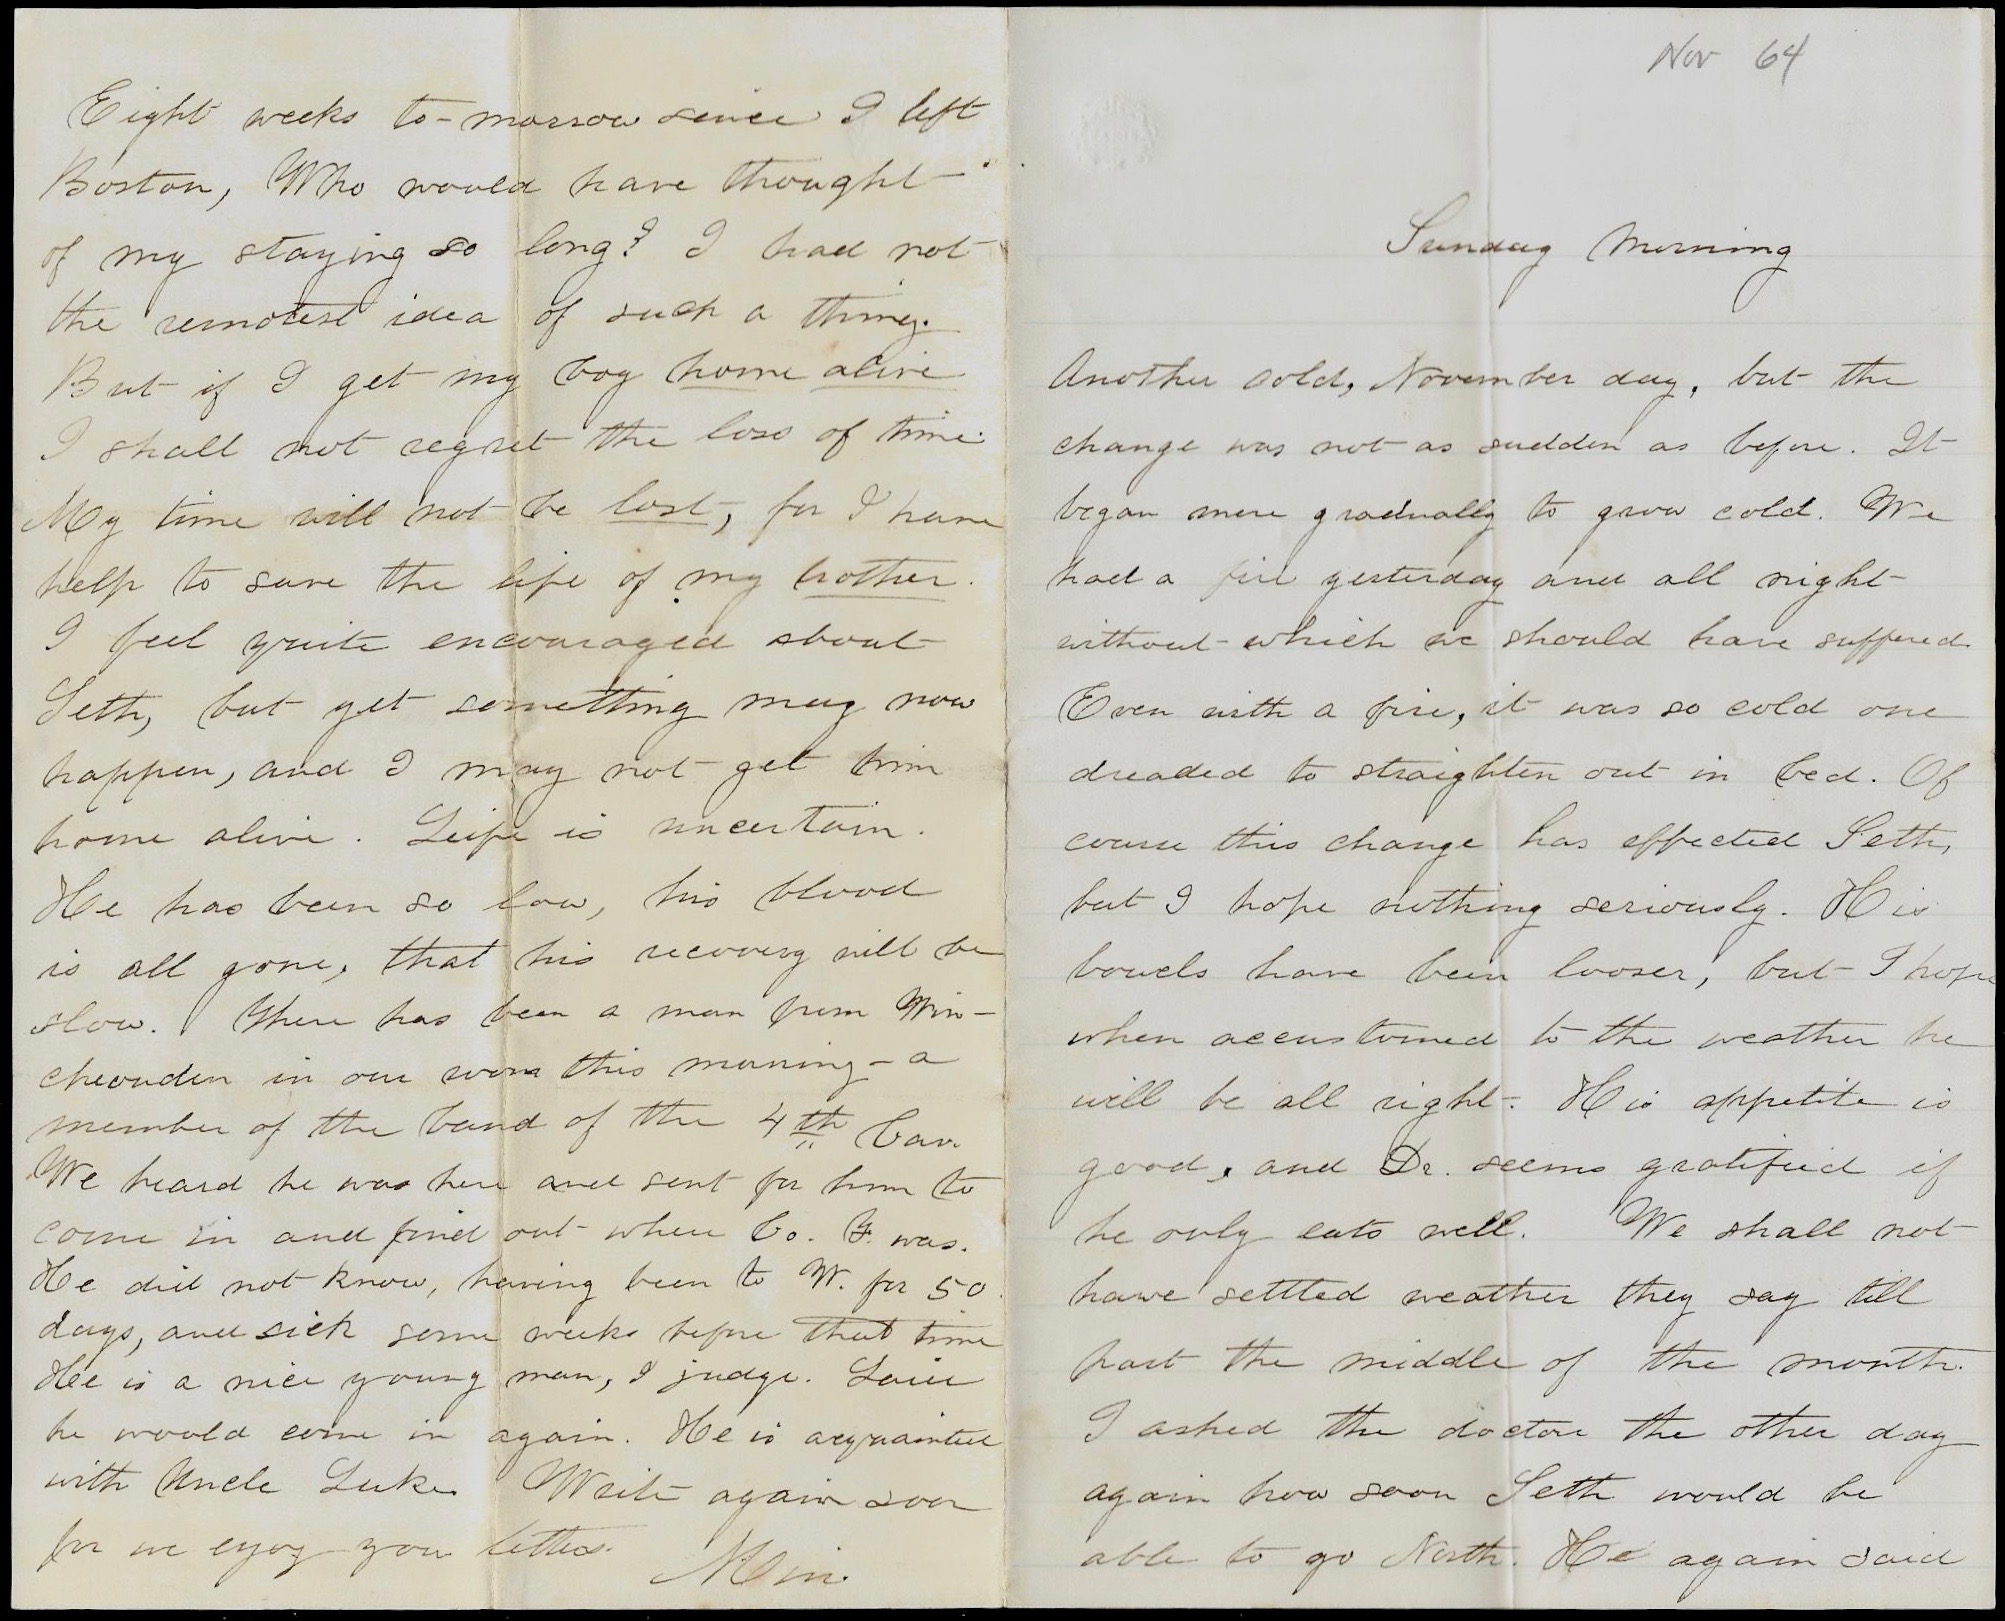 Eight weeks to-morrow since I left
Boston, Who would have thought
of my staying so long? I had not
the remotest idea of such a thing.
But if I get my boy home alive
I shall not regret the loss of time.
My time will not be lost, for I have
help to save the life of my brother.
I feel quite encouraged about
Seth, but yet something may now
happen, and I may not get him
home alive. Leife is uncertain.
He has been so low, his blood
is all gone, that his recovery will be
slow. There has been a man from Win-
chendon in our ward this morning - a
member of the band of the 4th Cav.
We heard he was here and sent for him to
come in and find out where Co. F. was.
He did not know, having been to W. for 50
days, and sick some weeks before that time
He is a nice young man, I judge. Said
he would come in again. He is acquainted
with Uncle Luke. Write again soon
for we enjoy your letters.
Min.
Nov 64
Sunday Morning
Another cold, November day, but the
change was not as sudden as before. It
began more gradually to grow cold. We
had a fire yesterday and all night
without which we should have suffered.
Even with a fire, it was so cold one
dreaded to straighten out in bed. Of
course this change has effected Seth,
but I hope nothing seriously. His
bowels have been looser, but I hope
when accustomed to the weather he
will be all right. His appetite is
good, and Dr. seems gratified if
he only eats well. We shall not
have settled weather they say till
past the middle of the month.
I asked the doctor the other day
again how soon Seth would be
able to go North. He again said